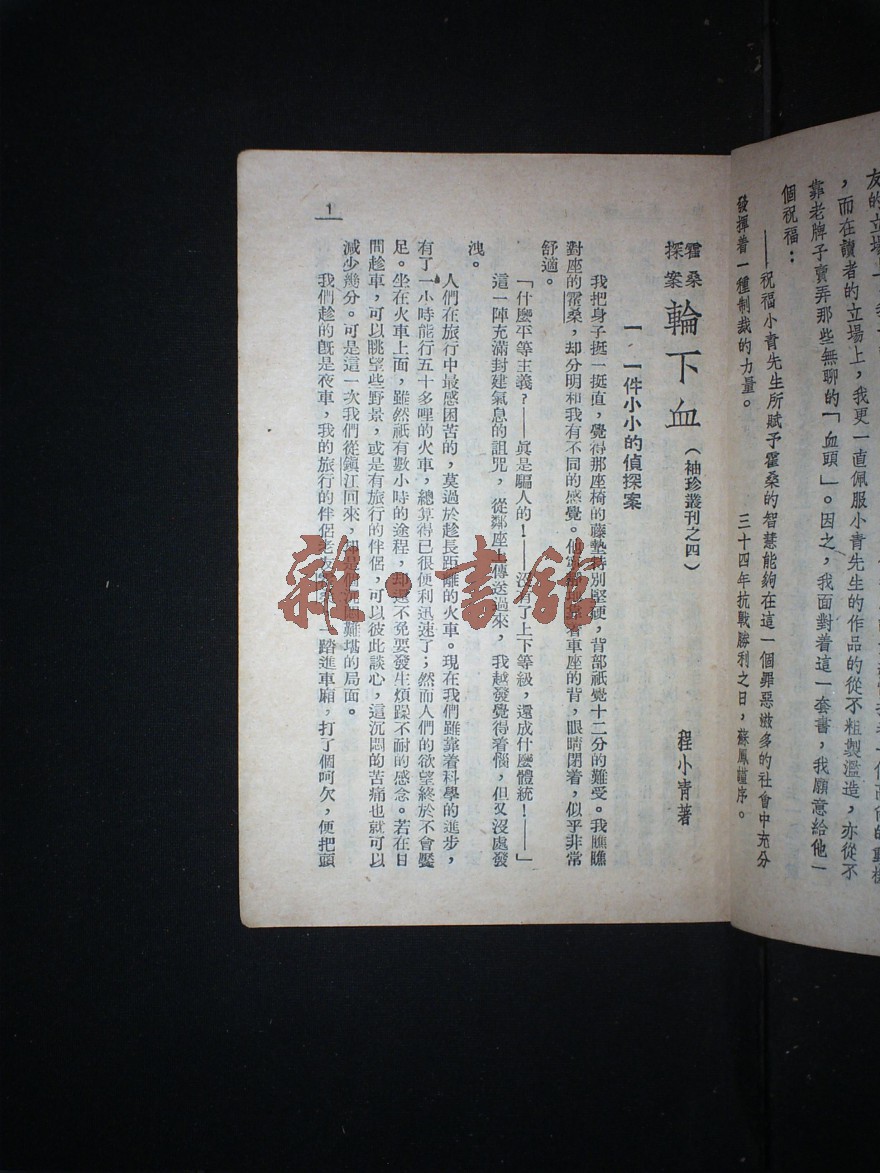 友的立場上
，而在讀者的立場上，我更一直佩服小青先生的作品的從不粗製濫造，亦從不
靠老牌子賣弄那些無聊的「血頭」。因之，我面對着這一套書，我願意給他一
個祝福：
——祝福小青先生所賦予霍桑的智慧能夠在這一個罪惡滋多的社會中充分
發揮着一種制裁的力量。
三十四年抗戰勝利之日，蘇鳳謚序。
霍桑
探案
輪下血
（袖珍叢刊之四）
程小青著
一　一件小小的偵探案
我把身子挺一挺直，覺得那座椅的藤墊特別堅硬，背部祇覺十二分的難受。我瞧瞧
對座的霍桑，却分明和我有不同的感覺。他靠着車座的背，眼睛閉着，似乎非常
舒適。
「什麼平等主義？——眞是騙人的！——沒有了上下等級，還成什麼體統！——」
這一陣充滿封建氣息的詛咒，從鄰座上傳送過來，我越發覺得着惱，但又沒處發
洩。
人們在旅行中最感困苦的，莫過於趁長距離的火車。現在我們雖靠着科學的進步，
有了一小時能行五十多哩的火車，總算得已很便利迅速了；然而人們的欲望終於不會饜
足。坐在火車上面，雖然祇有數小時的途程，却還不免要發生煩躁不耐的感念。若在日
間趁車，可以眺望些野景，或是有旅行的伴侶，可以彼此談心，這沉悶的苦痛也就可以
減少幾分。可是這一次我們從鎭江回來，難堪的局面。
我們趁的旣是夜車，我的旅行的伴侶老友踏進車廂，打了個呵欠，便把頭
1
雜·書館